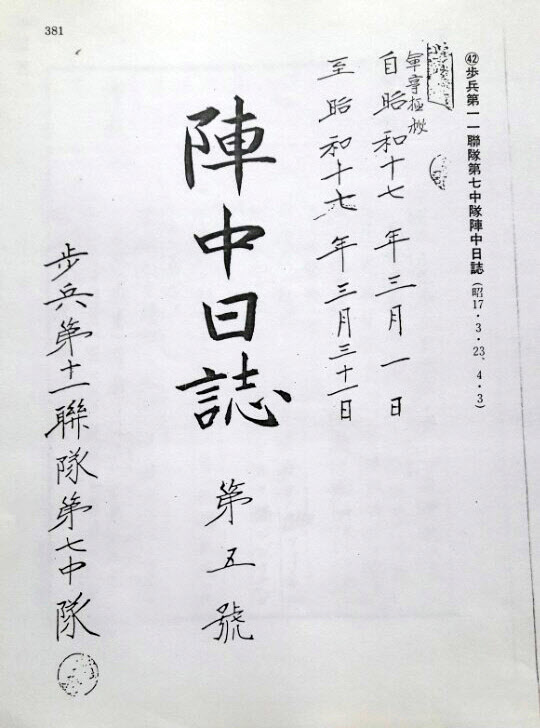 381
㊷歩兵第一一聯隊第七中隊陣中日誌(昭17・3・23、4・3)
軍事極秘
自昭和十七年三月一日
至昭和十七年三月三十一日
陣中日誌
第五號
歩兵第十一聯隊第七中隊